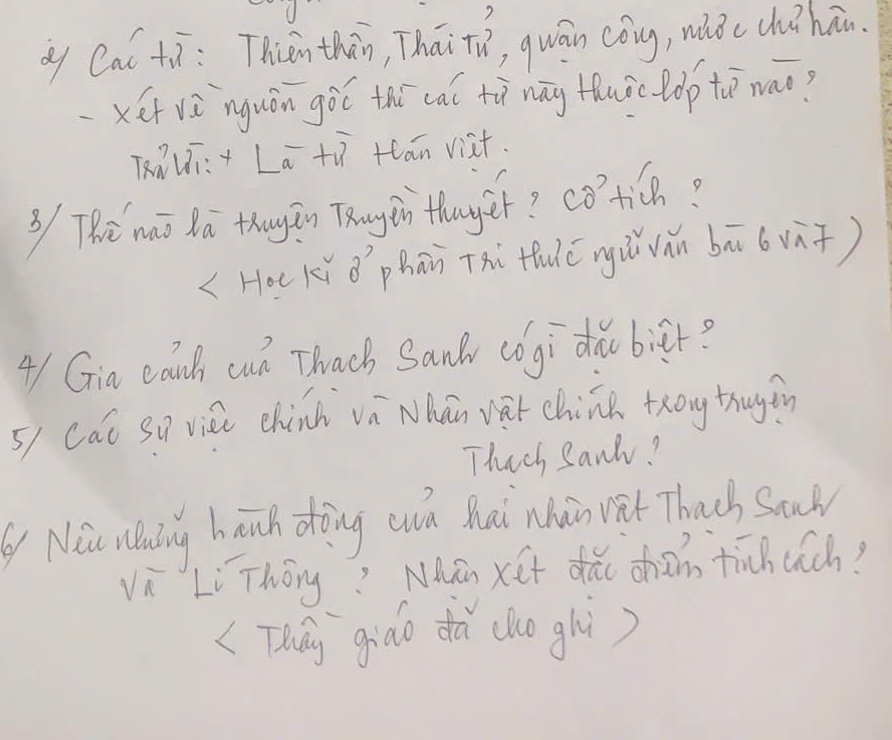 2/ Các từ: Thiên thần, Thái Tử, quận công, nước chư hầu.
- Xét về nguồn gốc thì các từ này thuộc lớp từ nào?
Trả lời: + Là từ Hán Việt.
3/ Thế nào là truyện Truyền thuyết? Cổ tích?
< Học kĩ ở phần Tri thức ngữ văn bài 6 và 7)
4/ Gia cảnh của Thạch Sanh có gì đặc biệt?
5/ Các sự việc chính và Nhân vật chính trong truyện
Thạch Sanh?
6/ Nêu những hành động của hai nhân vật Thạch Sanh
và Lí Thông? Nhận xét đặc điểm tính cách?
< Thầy giáo đã cho ghi >